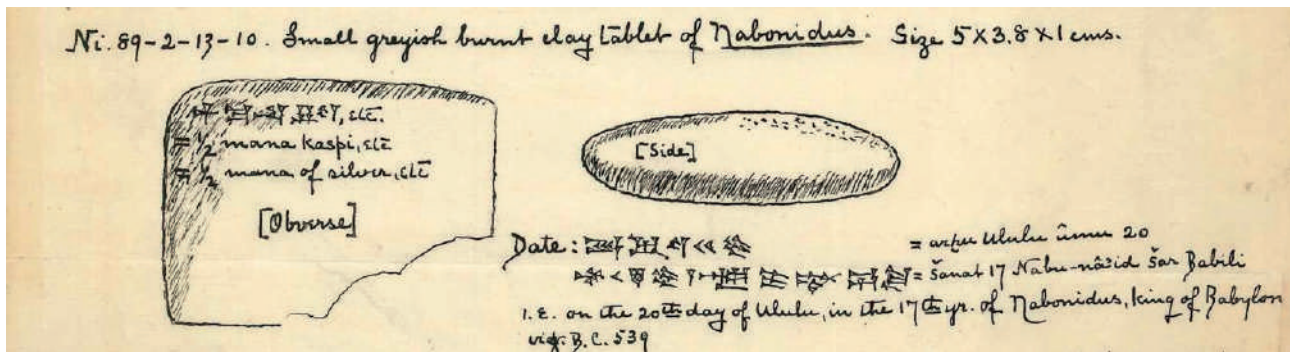 Ni. 89-2-13-10. Small greyish burnt clay tablet of Nabonidus. Size 5 X 3.8 X 1 cms.
etc.
= ½ mana kaspi, etc
= ½ mana of silver, etc
[Obverse]
[Side]
Date: = arḫu Ululu ûmu 20
= šanat 17 Nabu-nâ'id šar Babili
I.E. on the 20th day of Ululu, in the 17th yr. of Nabonidus, King of Babylon
viz. B.C. 539